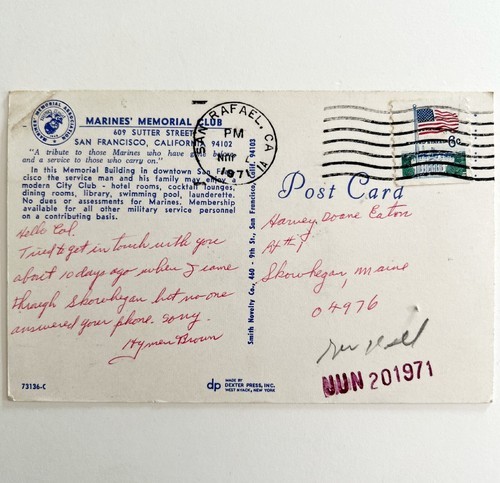 MARINES' MEMORIAL CLUB
609 SUTTER STREET
SAN FRANCISCO, CALIFORNIA 94102
"A tribute to those Marines who have gone before
and a service to those who carry on."
In this Memorial Building in downtown San Fran-
cisco the service man and his family may enjoy a
modern City Club - hotel rooms, cocktail lounges,
dining rooms, library, swimming pool, launderette.
No dues or assessments for Marines. Membership
available for all other military service personnel
on a contributing basis.
Hello Col.
Tried to get in touch with you
about 10 days ago when I came
through Skowhegan but no one
answered your phone. Sorry.
Hymen Brown
73136-C
Smith Novelty Co., 460 - 9th St., San Francisco, Calif. 94103
dp
MADE BY
DEXTER PRESS, INC.
WEST NYACK, NEW YORK
SAN RAFAEL, CA
PM
1971
6c
Post Card
Harvey Doane Eaton
Skowhegan, Maine
04976
20 1971